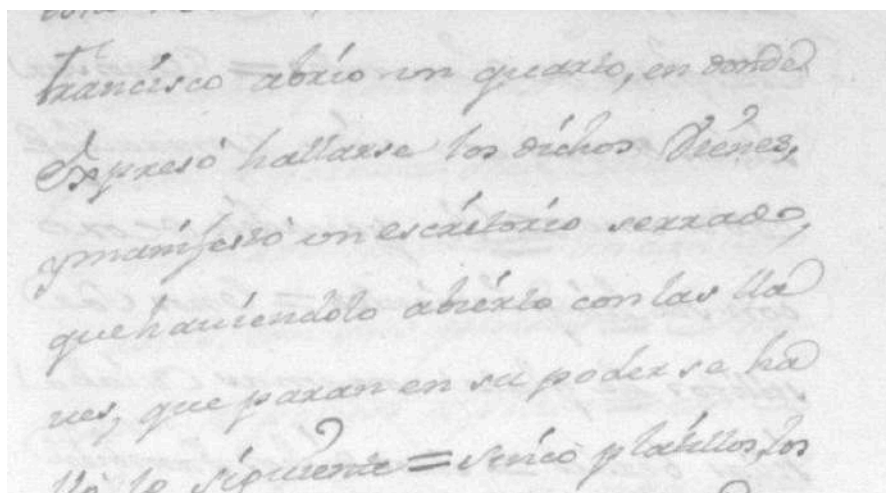 Francisco abrio un quarto, en donde
Expresó hallarse los dichos Vienes,
y manifestó un escritorio serrado,
que haviendolo abierto con las lla
ves, que paran en su poder se ha
lló lo siguiente = Sinco platillos, los